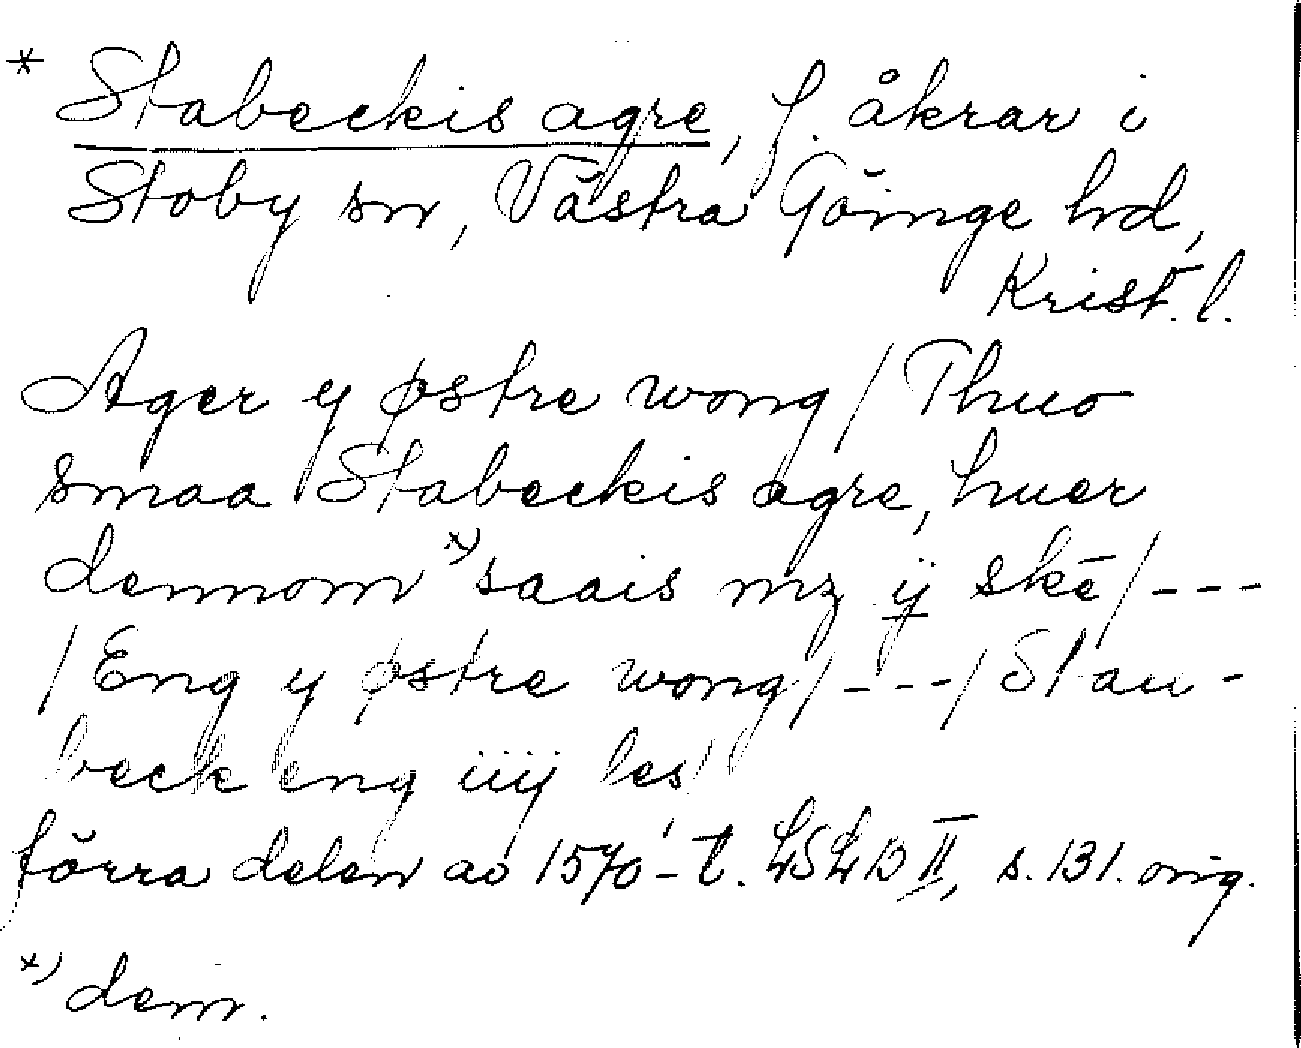 * Stabeckis agre, f. åkrar i
Stoby sn, Västra Göinge hd,
Krist. l.
Ager y østre wong / Thuo
smaa Stabeckis agre, huer
dennom *) saais mz ÿ skē / ---
/ Eng y østre wong / --- / Stau-
beck eng iiij les /
förra delen av 1570-t. LSLB II, s. 131. orig.
*) dem.